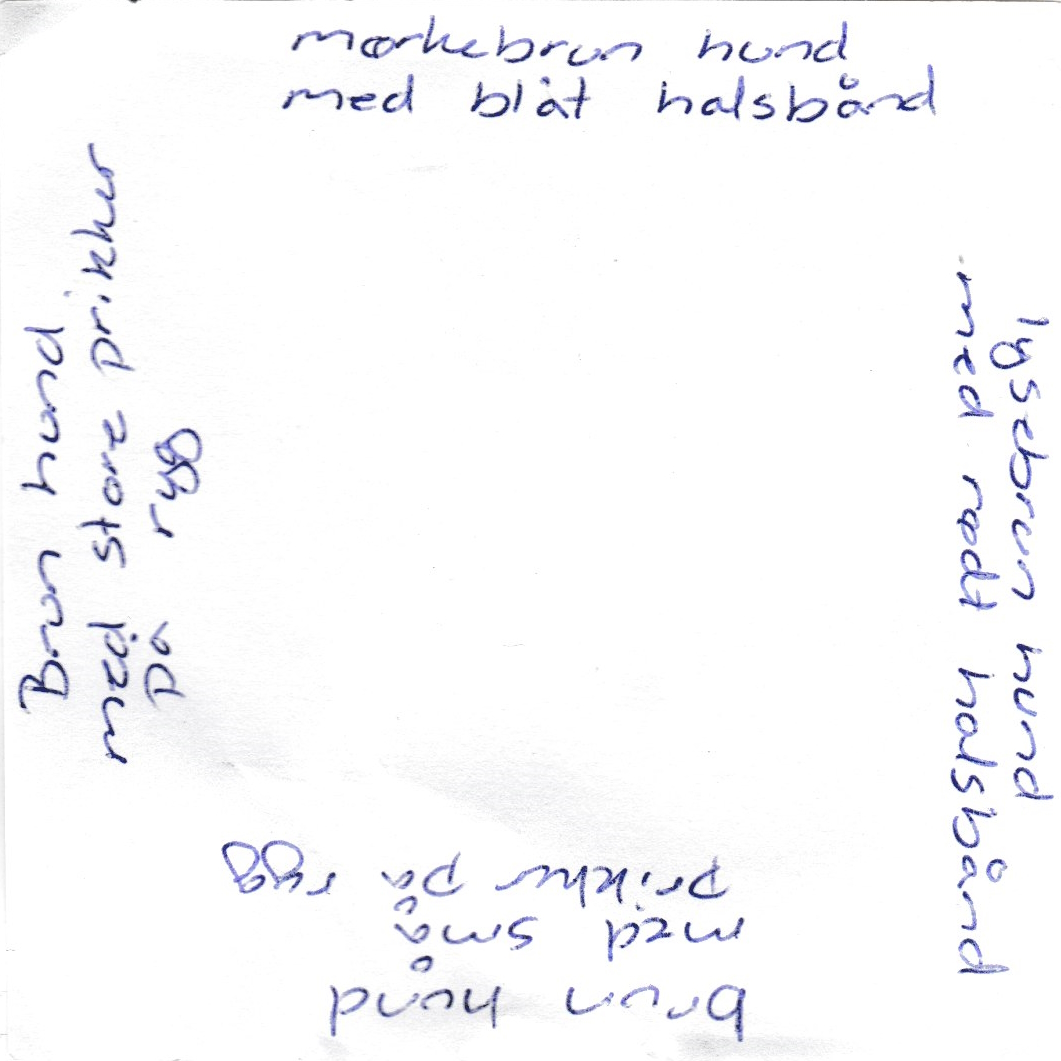 mørkebrun hund
med blåt halsbånd
lysebrun hund
med rødt halsbånd
brun hund
med små
prikker på rygg
Brun hund
med store prikker
på rygg